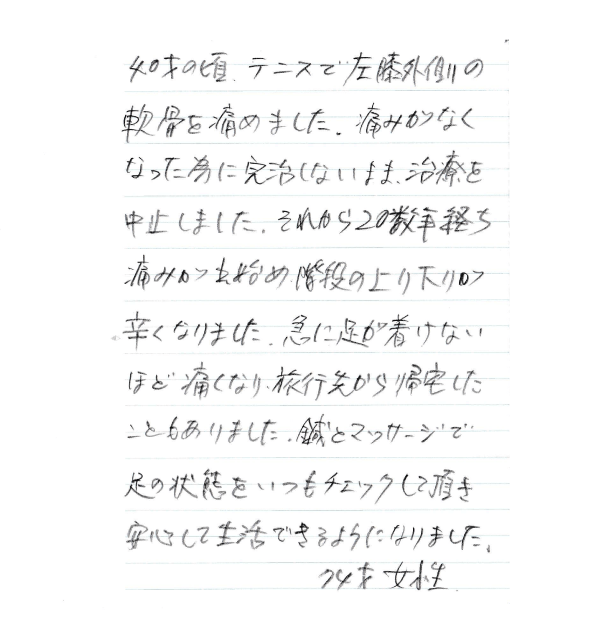 40才の頃、テニスで左膝外側の
軟骨を痛めました。痛みがなく
なった為に完治しないまま、治療を
中止しました。それから20数年経ち
痛みが出始め、階段の上り下りが
辛くなりました。急に足が着けない
ほど痛くなり、旅行先から帰宅した
こともありました。鍼とマッサージで
足の状態をいつもチェックして頂き
安心して生活できるようになりました。
74才 女性